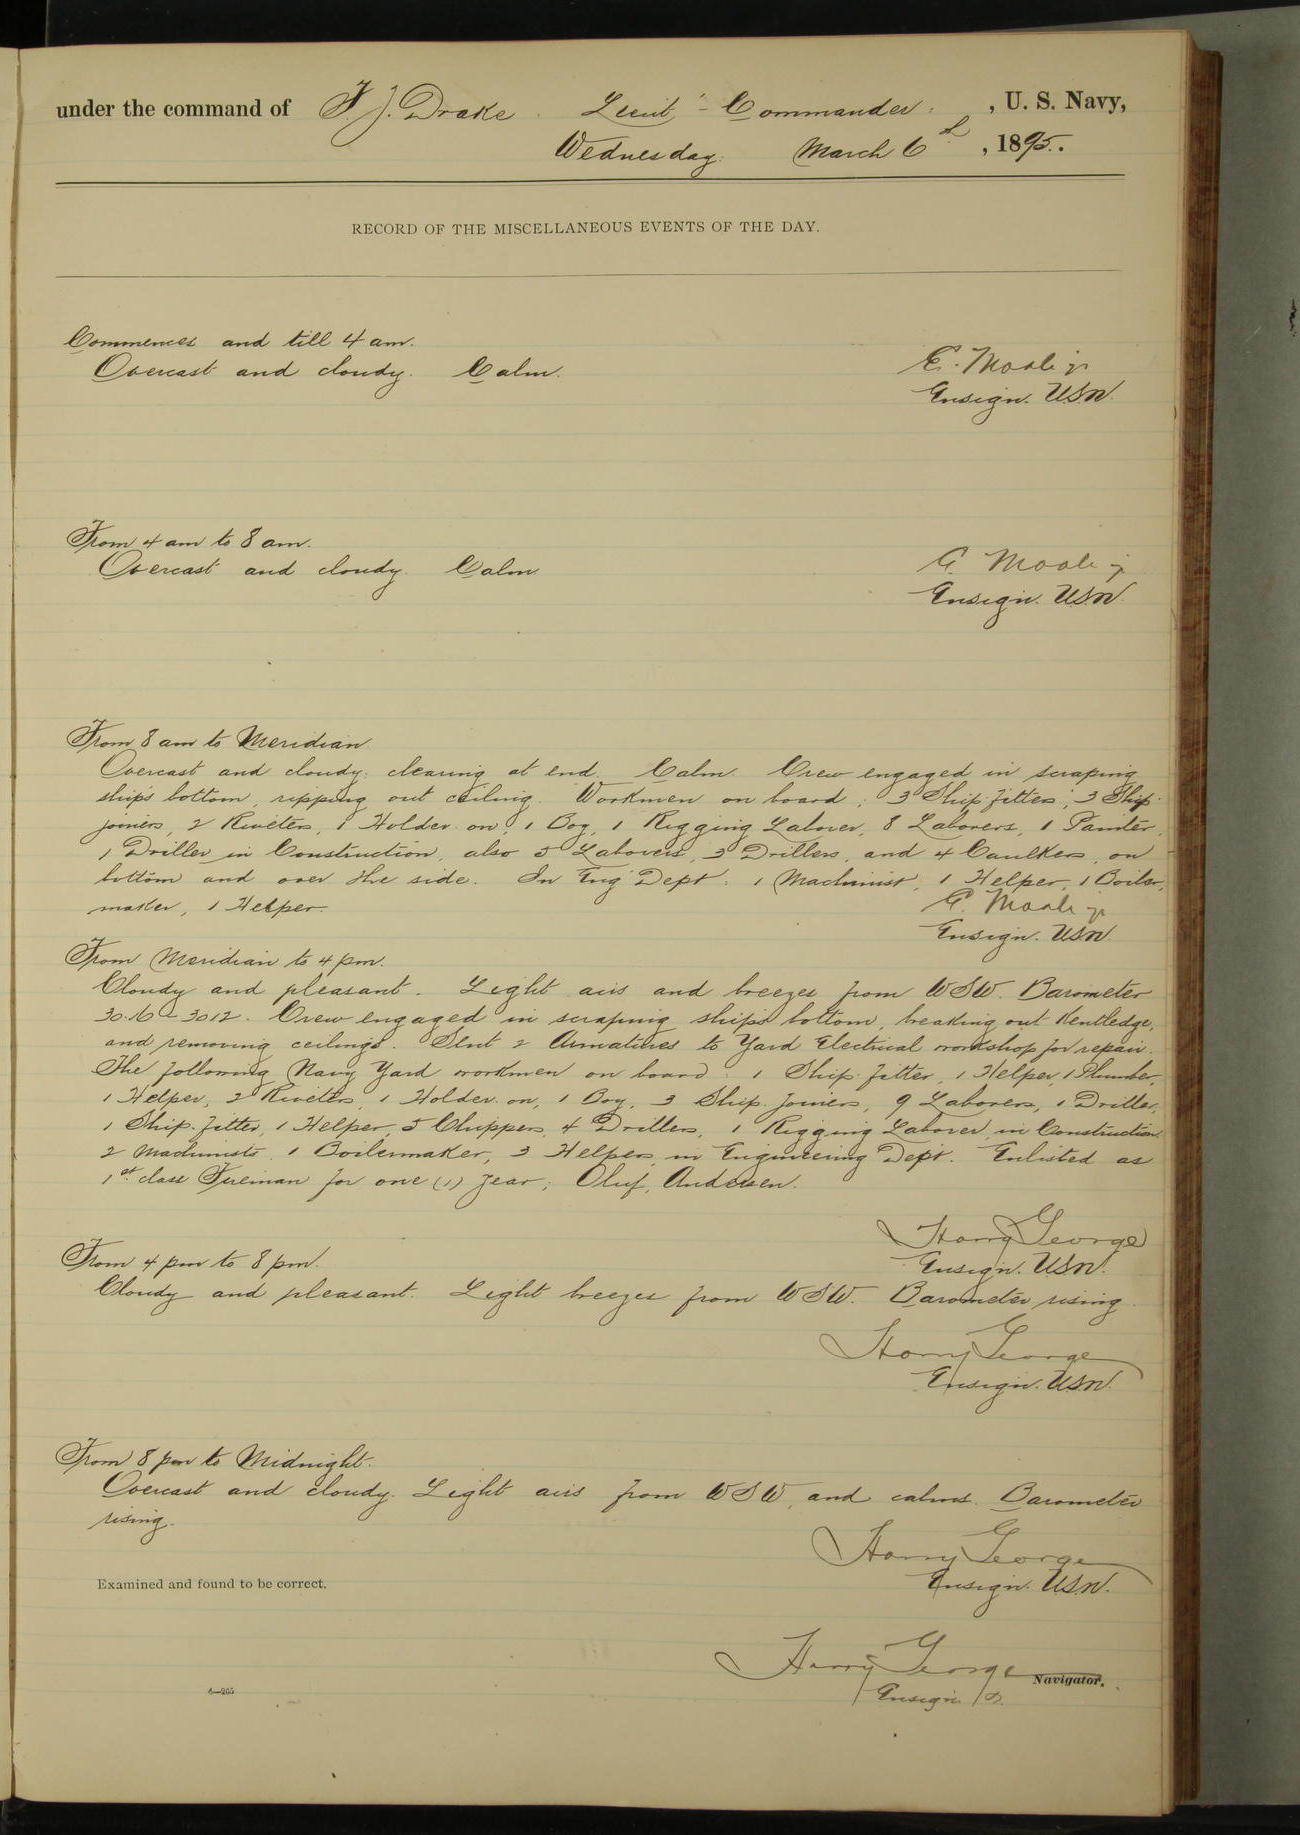 under the command of F J. Drake. Lieut - Commander. , U. S. Navy,
Wednesday. March 6th , 1895.
RECORD OF THE MISCELLANEOUS EVENTS OF THE DAY.
Commences and till 4 am.
Overcast and cloudy. Calm.
E. Moale jr
Ensign. USN.
From 4 am to 8 am.
Overcast and cloudy. Calm
E. Moale jr
Ensign. USN.
From 8 am to Meridian
Overcast and cloudy: clearing at end. Calm. Crew engaged in scraping
ship's bottom, ripping out ceiling. Workmen on board: 3 Ship-fitters, 3 Ship-
joiners, 2 Riveters, 1 Holder-on, 1 Boy, 1 Rigging Laborer, 8 Laborers, 1 Painter,
1 Driller in Construction, also 5 Laborers, 3 Drillers, and 4 Caulkers, on
bottom and over the side. In Eng' Dept: 1 Machinist, 1 Helper, 1 Boiler,
maker, 1 Helper.
E. Moale jr
Ensign. USN.
From Meridian to 4 pm.
Cloudy and pleasant. Light airs and breezes from WSW. Barometer
30.16 - 30.12. Crew engaged in scraping ship's bottom, breaking out Kentledge,
and removing ceilings. Sent 2 Armatures to Yard Electrical workshop for repair.
The following Navy Yard workmen on board: 1 Ship-fitter, 1 Helper, 1 Plumber,
1 Helper, 2 Riveters, 1 Holder-on, 1 Boy, 3 Ship-joiners, 9 Laborers, 1 Driller,
1 Ship-fitter, 1 Helper, 5 Chippers, 4 Drillers, 1 Rigging Laborer in Construction
2 Machinists, 1 Boilermaker, 3 Helpers in Engineering Dept. Enlisted as
1st class Fireman for one (1) year; Oluf, Andersen.
Harry George
Ensign. USN.
From 4 pm to 8 pm.
Cloudy and pleasant. Light breezes from WSW. Barometer rising.
Harry George
Ensign. USN.
From 8 pm to Midnight.
Overcast and cloudy. Light airs from WSW, and calms. Barometer
rising.
Harry George
Ensign. USN.
Examined and found to be correct.
Harry George
Navigator.
Ensign
6—265